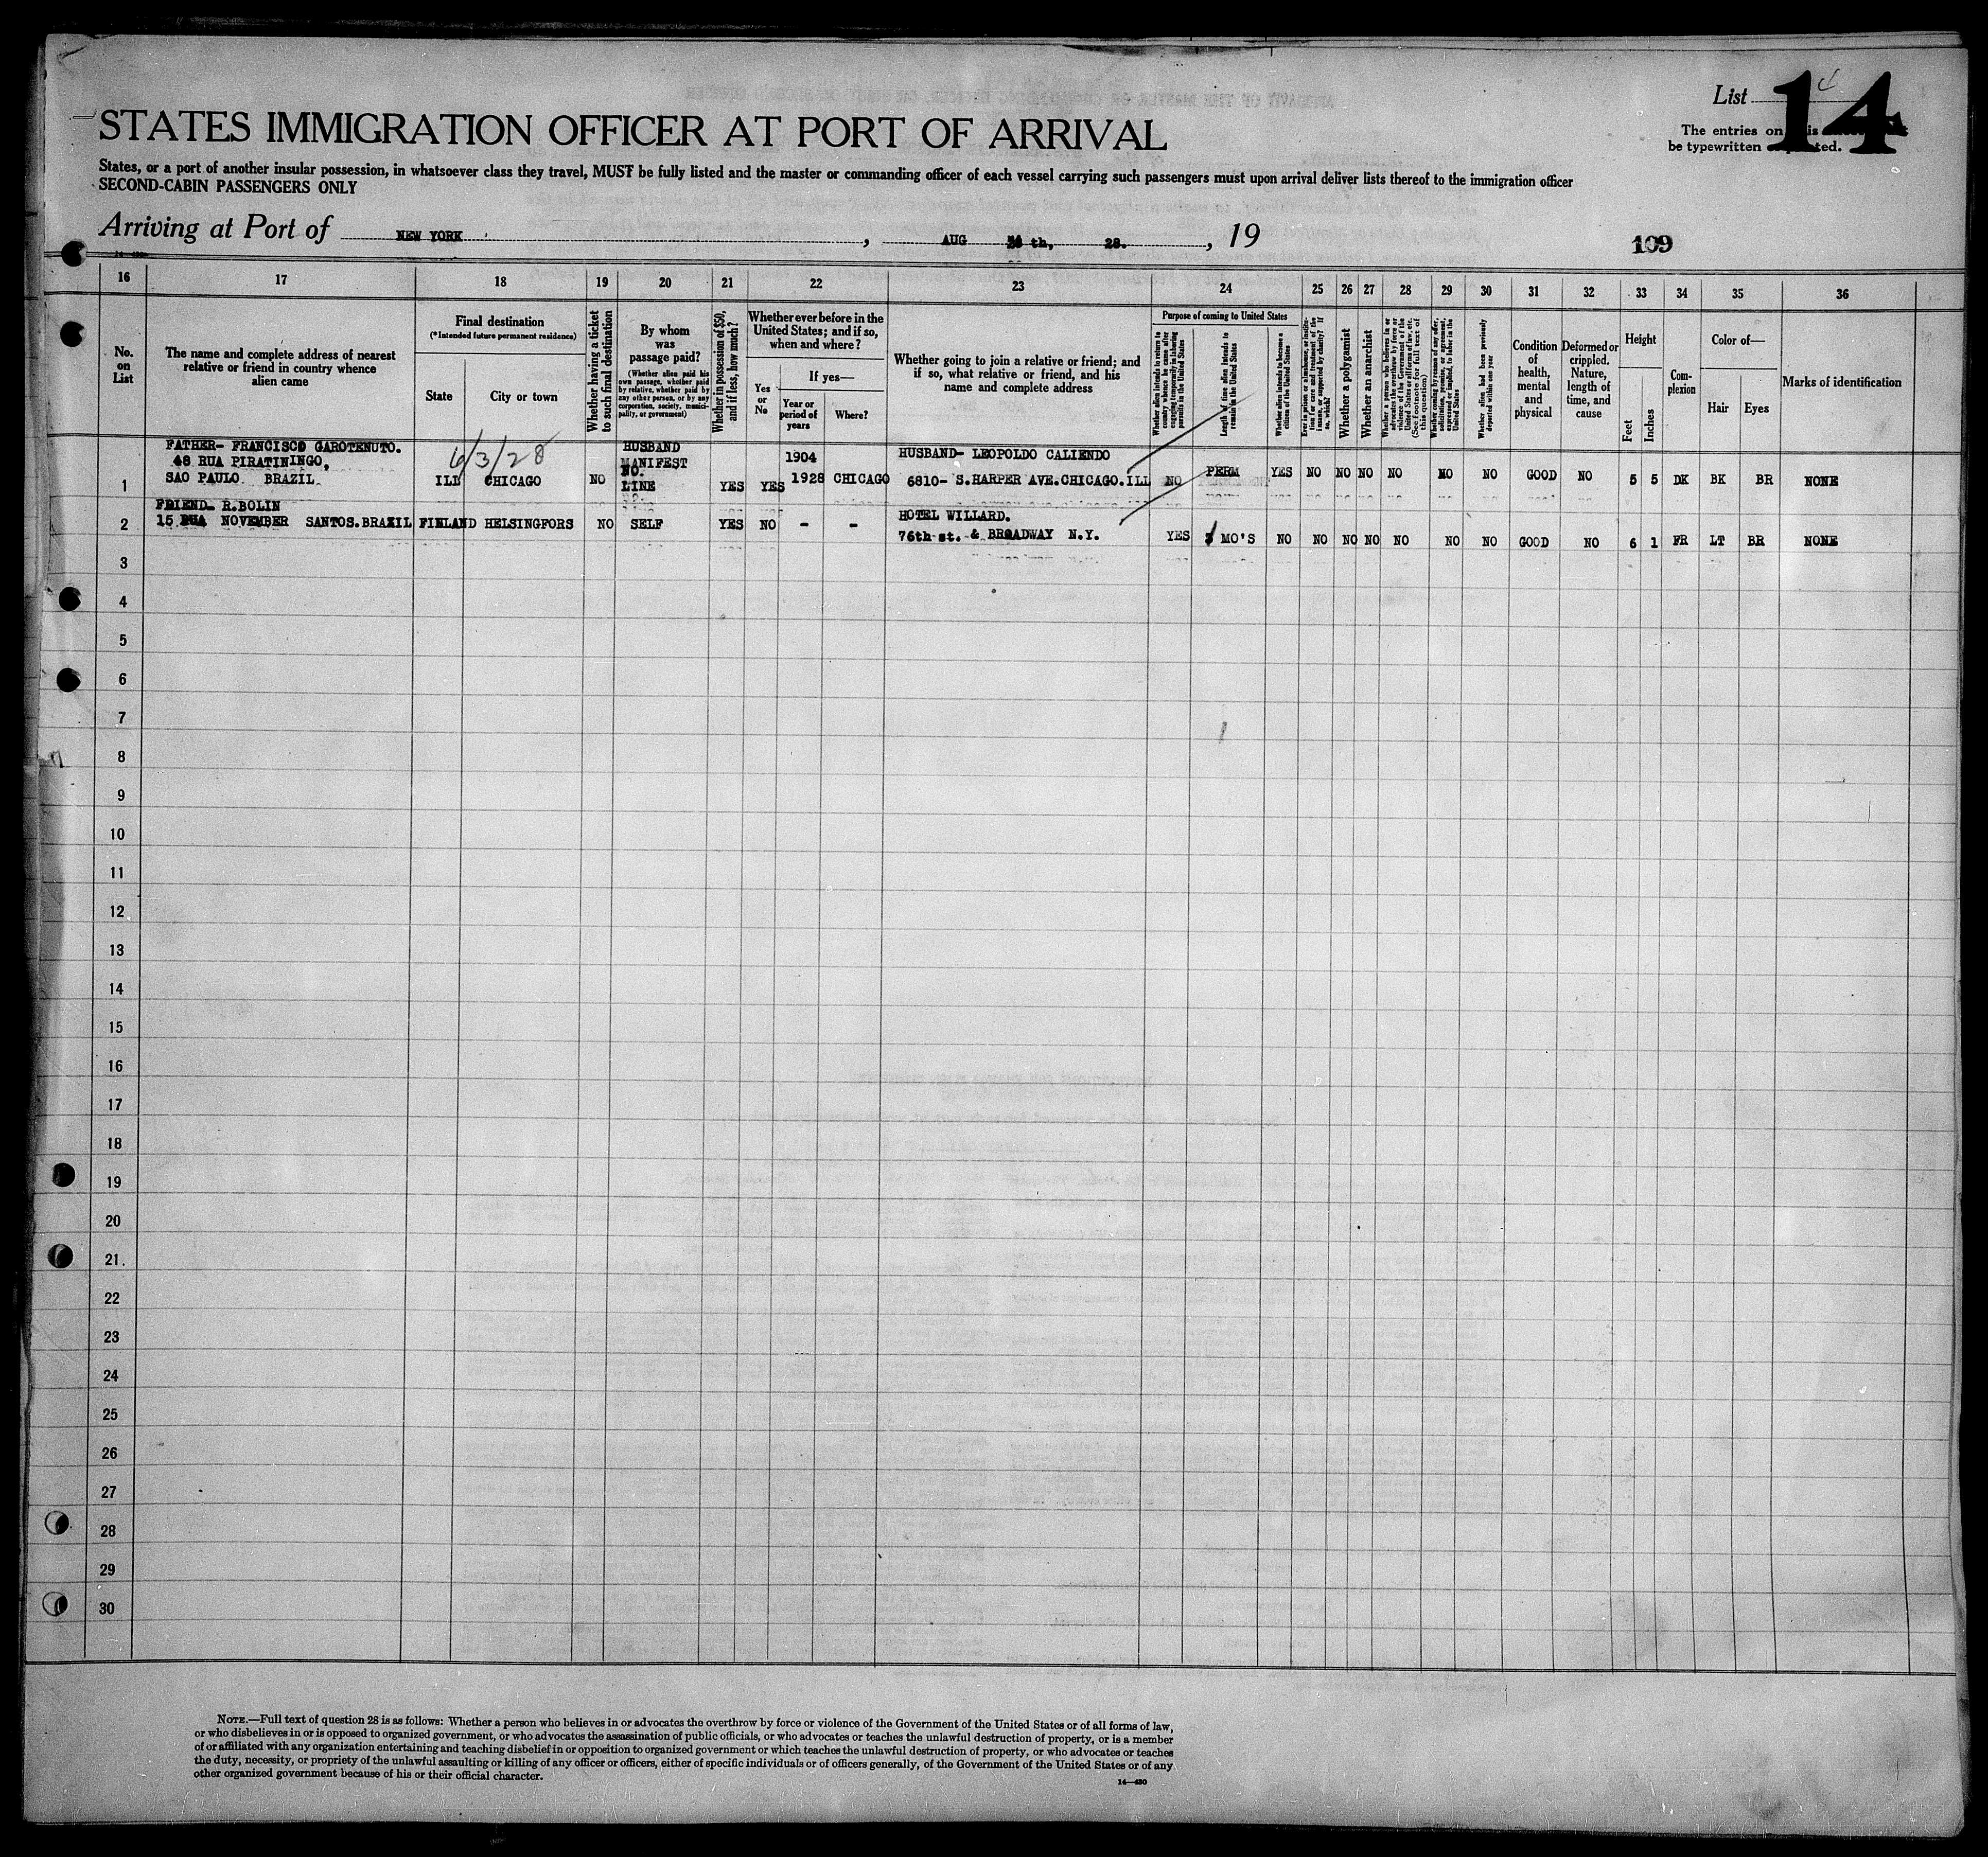 List 14
STATES IMMIGRATION OFFICER AT PORT OF ARRIVAL
The entries on
be typewritten
States, or a port of another insular possession, in whatsoever class they travel, MUST be fully listed and the master or commanding officer of each vessel carrying such passengers must upon arrival deliver lists thereof to the immigration officer
SECOND-CABIN PASSENGERS ONLY
Arriving at Port of NEW YORK, AUG th, 28., 19
109
16 17 18 19 20 21 22 23 24 25 26 27 28 29 30 31 32 33 34 35 36
No. on List
The name and complete address of nearest relative or friend in country whence alien came
Final destination
(*Intended future permanent residence)
State
City or town
Whether having a ticket to such final destination
By whom was passage paid?
(Whether alien paid his own passage, whether paid by relative, whether paid by any other person, or by any corporation, society, municipality, or government)
Whether in possession of $50, and if less, how much?
Whether ever before in the United States; and if so, when and where?
Yes or No
If yes—
Year or period of years
Where?
Whether going to join a relative or friend; and if so, what relative or friend, and his name and complete address
Purpose of coming to United States
Whether alien intends to return to country whence he came after engaging temporarily in laboring pursuits in the United States
Length of time alien intends to remain in the United States
Whether alien intends to become a citizen of the United States
Ever in prison or almshouse, or institution for care and treatment of the insane, or supported by charity? If so, which?
Whether a polygamist
Whether an anarchist
Whether a person who believes in or advocates the overthrow by force or violence of the Government of the United States or all forms of law, etc. (See footnote for full text of this question)
Whether coming by reason of any offer, solicitation, promise, or agreement, expressed or implied, to labor in the United States
Whether alien had been previously deported within one year
Condition of health, mental and physical
Deformed or crippled. Nature, length of time, and cause
Height
Feet
Inches
Complexion
Color of—
Hair
Eyes
Marks of identification
6/3/28
1 FATHER- FRANCISCO GAROTENUTO.
48 RUA PIRATININGO,
SAO PAULO BRAZIL. ILL CHICAGO NO HUSBAND MANIFEST NO. LINE YES YES 1904 1928 CHICAGO HUSBAND- LEOPOLDO CALIENDO
6810- S.HARPER AVE.CHICAGO.ILL NO PERM YES NO NO NO NO NO NO GOOD NO 5 5 DK BK BR NONE
2 FRIEND- R.BOLIN
15 RUA NOVEMBER SANTOS.BRAZIL FINLAND HELSINGFORS NO SELF YES NO - - HOTEL WILLARD.
76th st. & BROADWAY N.Y. YES MO'S NO NO NO NO NO NO NO GOOD NO 6 1 FR LT BR NONE
3
4
5
6
7
8
9
10
11
12
13
14
15
16
17
18
19
20
21
22
23
24
25
26
27
28
29
30
NOTE.—Full text of question 28 is as follows: Whether a person who believes in or advocates the overthrow by force or violence of the Government of the United States or of all forms of law,
or who disbelieves in or is opposed to organized government, or who advocates the assassination of public officials, or who advocates or teaches the unlawful destruction of property, or is a member
of or affiliated with any organization entertaining and teaching disbelief in or opposition to organized government or which teaches the unlawful destruction of property, or who advocates or teaches
the duty, necessity, or propriety of the unlawful assaulting or killing of any officer or officers, either of specific individuals or of officers generally, of the Government of the United States or of any
other organized government because of his or their official character.
14—430